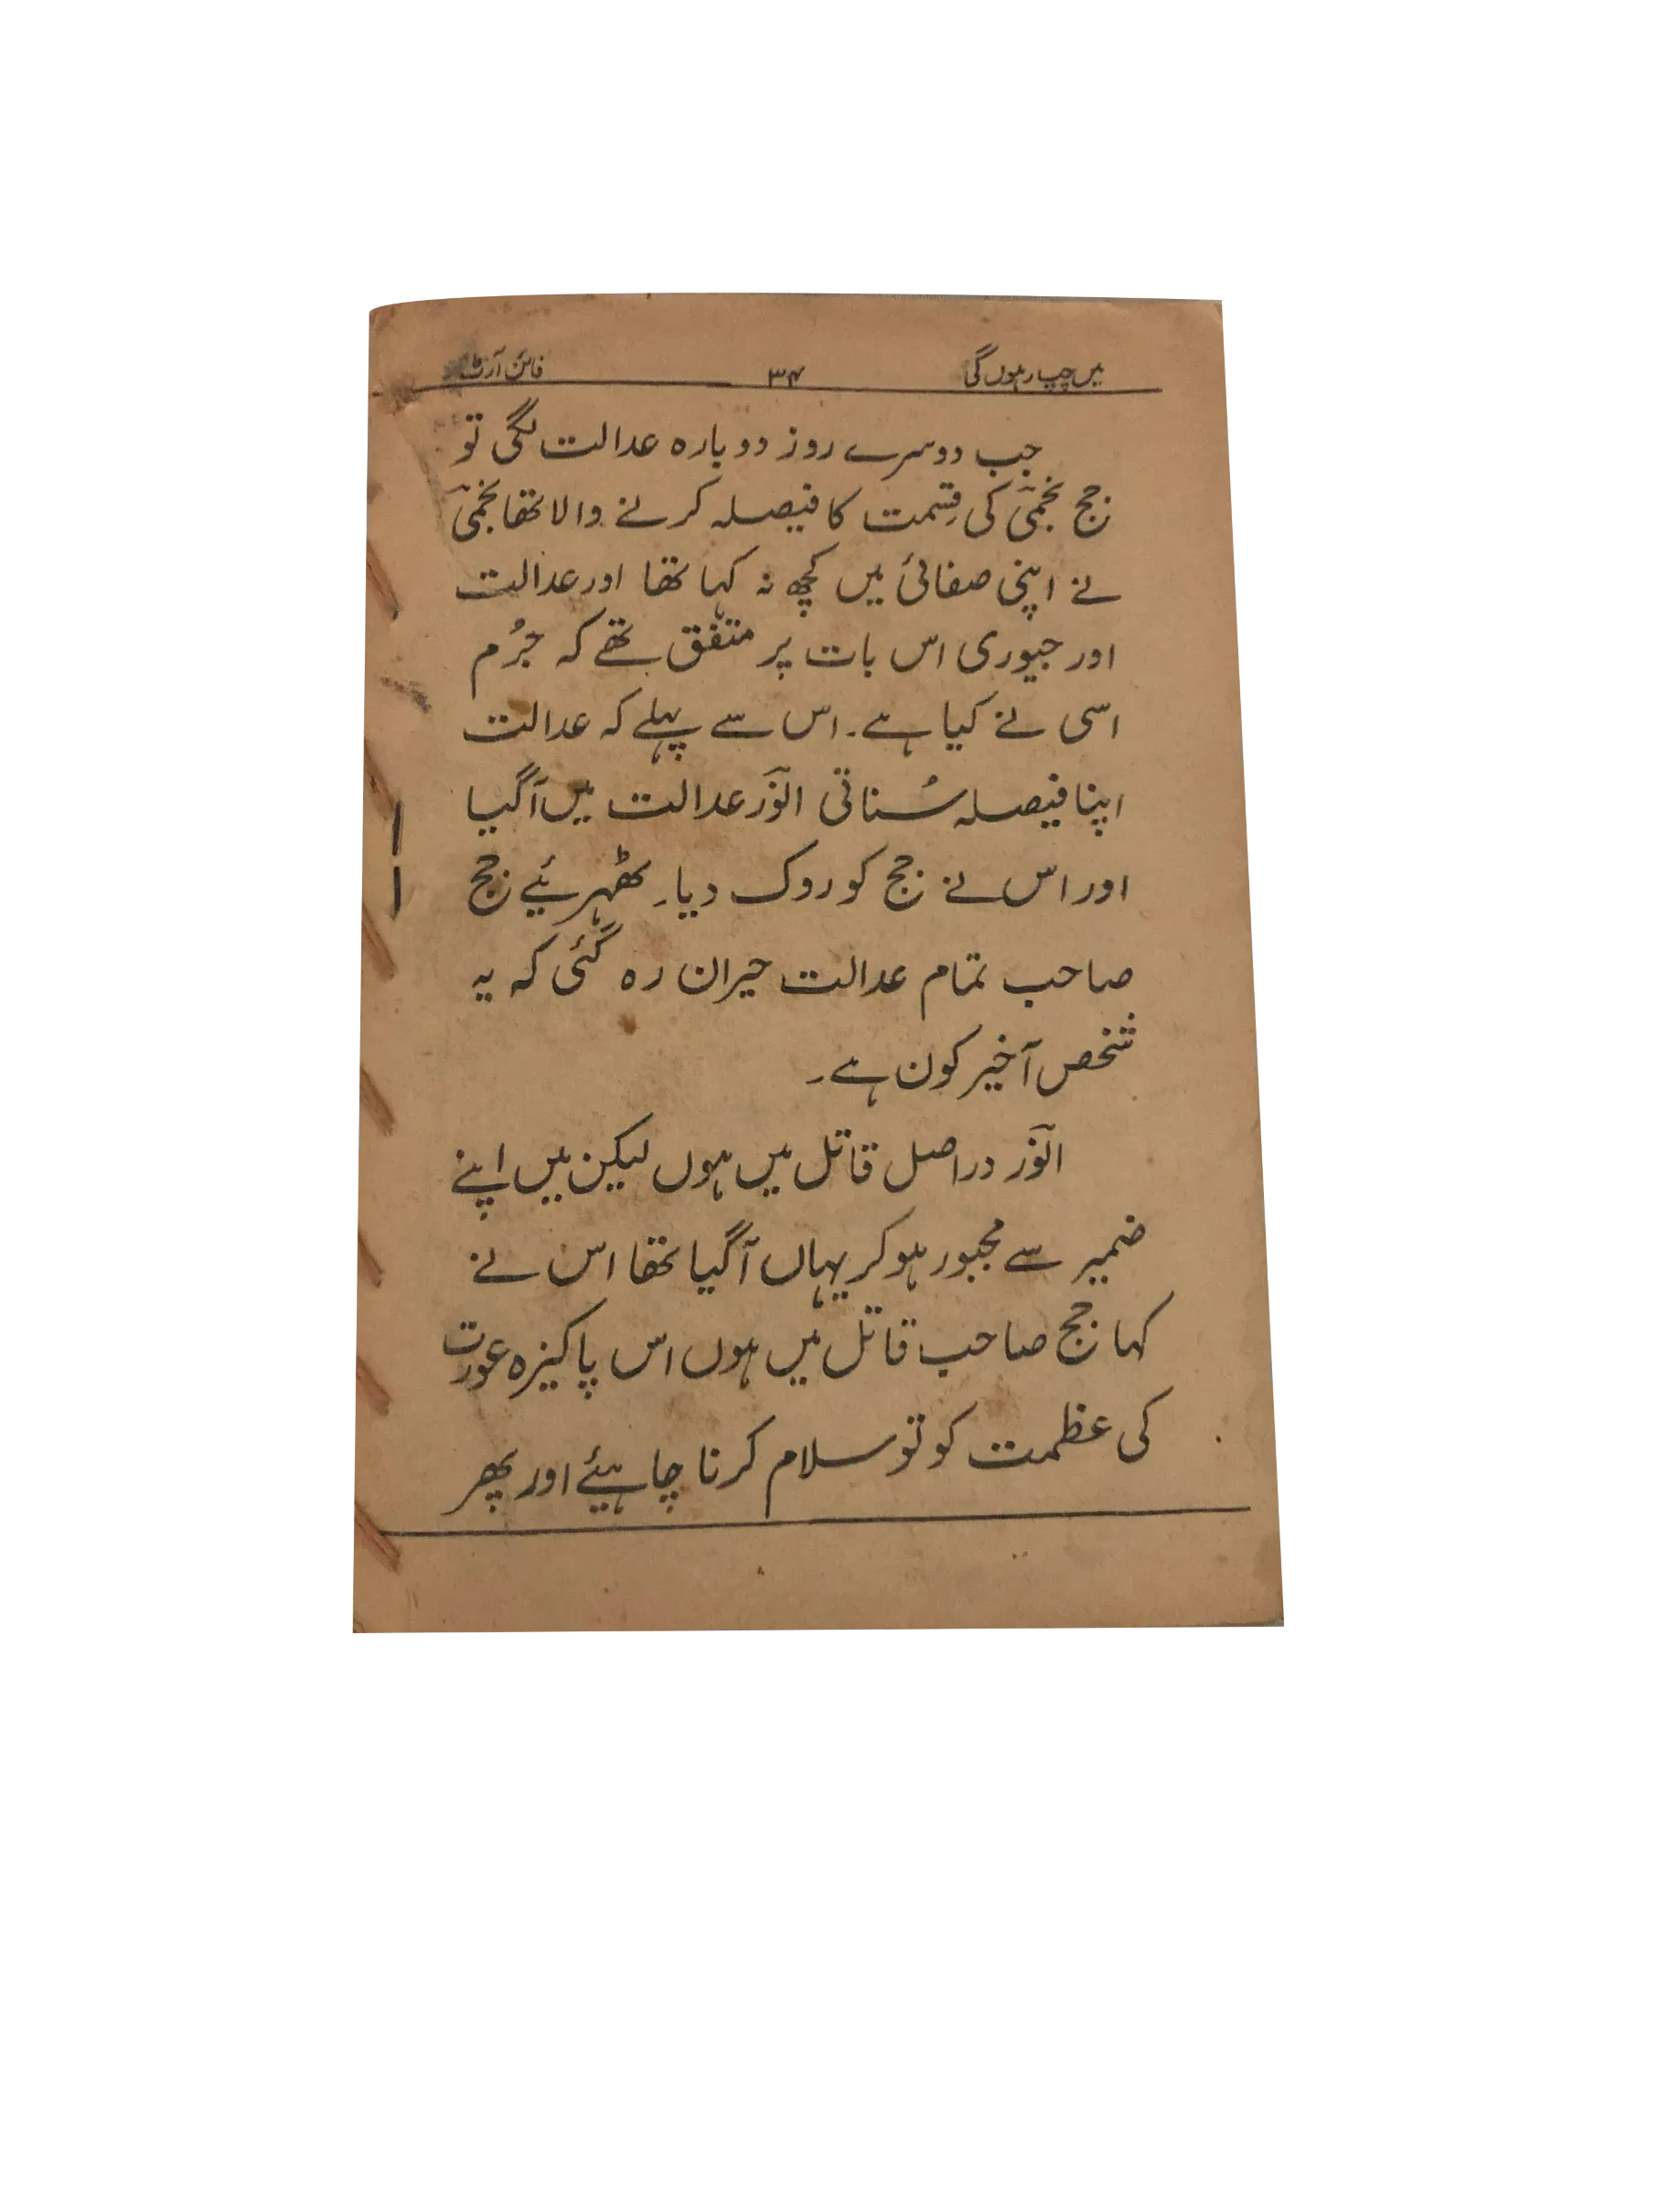 میں چپ رہوں گی ۳۴ فائن آرٹ
جب دوسرے روز دوبارہ عدالت لگی تو
جج نجمی کی قِسمت کا فیصلہ کرنے والا تھا نجمی
نے اپنی صفائی میں کچھ نہ کہا تھا اور عدالت
اور جیوری اس بات پر متفق تھے کہ جُرم
اسی نے کیا ہے۔ اس سے پہلے کہ عدالت
اپنا فیصلہ سُناتی انور عدالت میں آگیا
اور اس نے جج کو روک دیا۔ ٹھہریئے جج
صاحب تمام عدالت حیران رہ گئی کہ یہ
شخص آخیر کون ہے۔
انور دراصل قاتل میں ہوں لیکن میں اپنے
ضمیر سے مجبور ہو کر یہاں آگیا تھا اس نے
کہا جج صاحب قاتل میں ہوں اس پاکیزہ عورت
کی عظمت کو تو سلام کرنا چاہیئے اور پھر